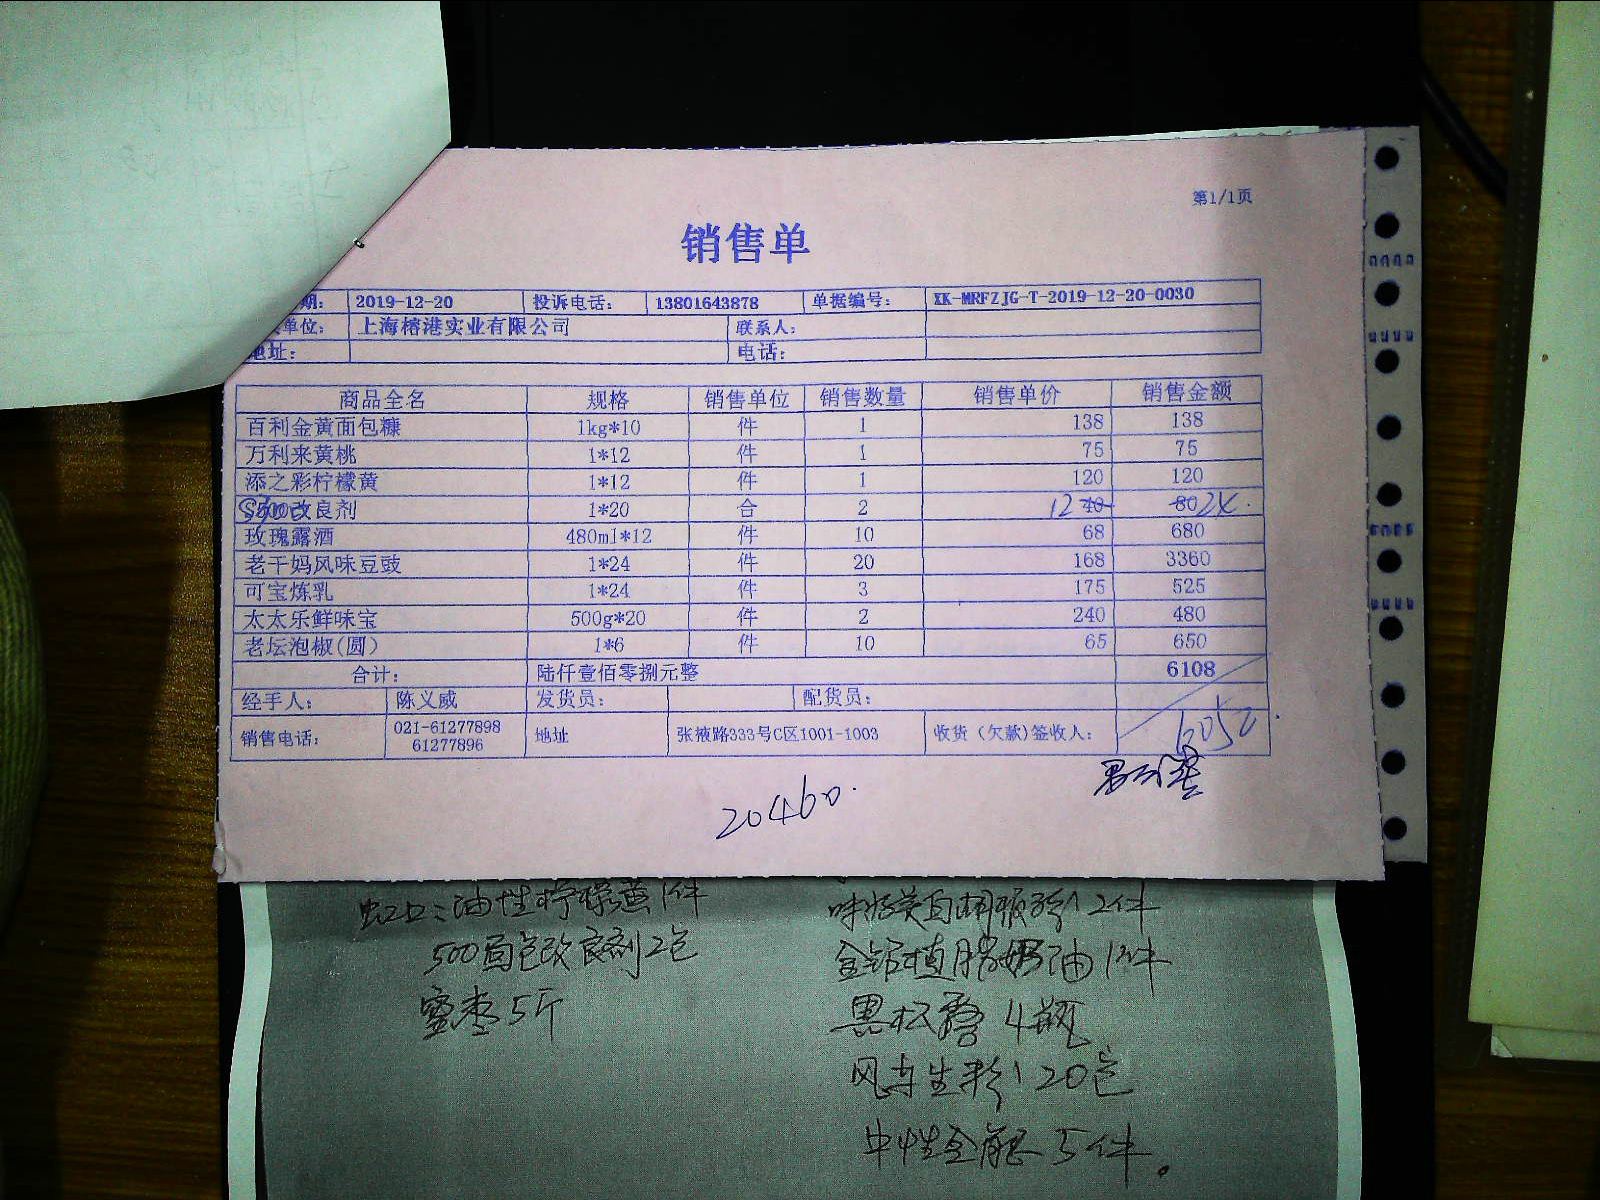 第1/1页
销售单
期: 2019-12-20 投诉电话: 13801643878 单据编号: XK-MRFZJG-T-2019-12-20-0030
单位: 上海榕港实业有限公司 联系人:
地址: 电话:
商品全名 规格 销售单位 销售数量 销售单价 销售金额
百利金黄面包糠 1kg*10 件 1 138 138
万利来黄桃 1*12 件 1 75 75
添之彩柠檬黄 1*12 件 1 120 120
S500改良剂 1*20 合 2 12 40 80 24.
玫瑰露酒 480ml*12 件 10 68 680
老干妈风味豆豉 1*24 件 20 168 3360
可宝炼乳 1*24 件 3 175 525
太太乐鲜味宝 500g*20 件 2 240 480
老坛泡椒(圆) 1*6 件 10 65 650
合计: 陆仟壹佰零捌元整 6108
经手人: 陈义威 发货员: 配货员:
销售电话: 021-61277898 61277896 地址 张掖路333号C区1001-1003 收货(欠款)签收人: 6052
20460.
虹口:油性柠檬黄1件
500面包改良剂2包
蜜枣5斤
2件
金钻植脂奶油1件
黑松露4瓶
风车生粉120包
中性全能5件。